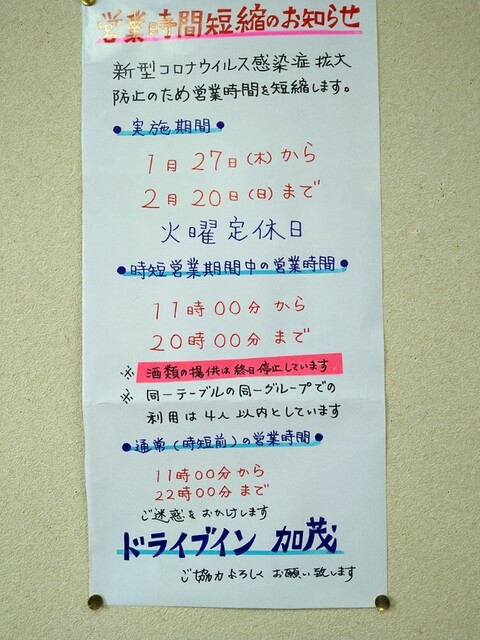 営業時間短縮のお知らせ
新型コロナウイルス感染症拡大
防止のため営業時間を短縮します。
●実施期間●
1月27日(木)から
2月20日(日)まで
火曜定休日
●時短営業期間中の営業時間●
11時00分から
20時00分まで
※酒類の提供は終日停止しています
※同一テーブルの同一グループでの
利用は4人以内としています
●通常(時短前)の営業時間●
11時00分から
22時00分まで
ご迷惑をおかけします
ドライブイン 加茂
ご協力よろしくお願い致します